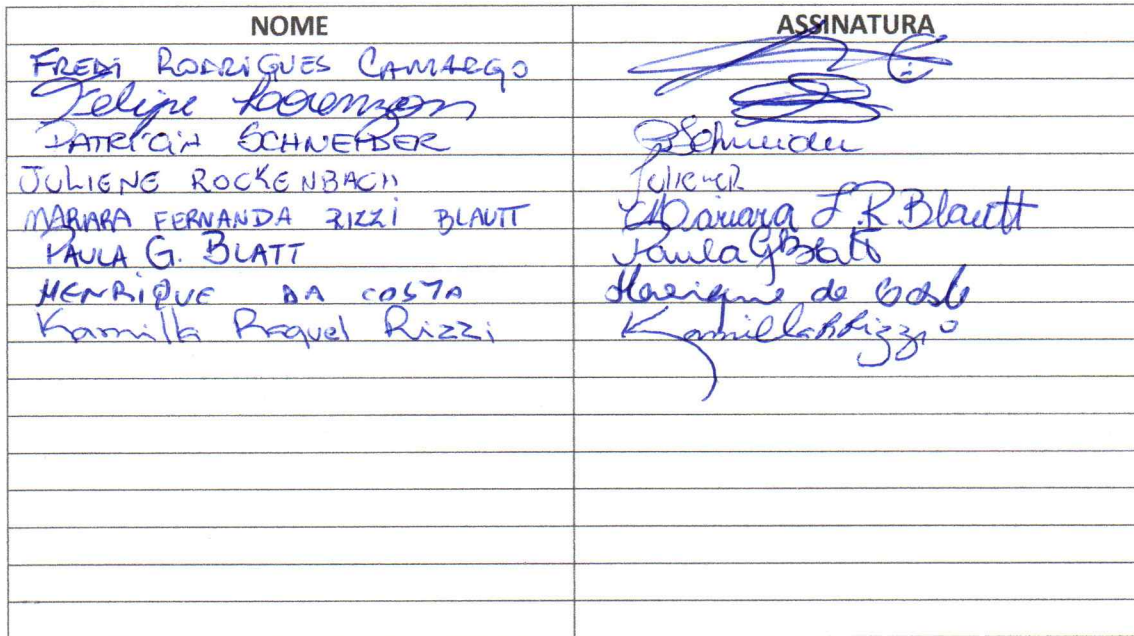 NOME ASSINATURA
FREDI RODRIGUES CAMARGO
Felipe Lorenzon
PATRICIA SCHNEIDER PSchneider
JULIENE ROCKENBACH JulieneR
MARIARA FERNANDA RIZZI BLAUTT Mariara F. R. Blautt
PAULA G. BLATT Paula G Blatt
HENRIQUE DA COSTA Henrique da Costa
Kamilla Raquel Rizzi Kamilla R Rizzi